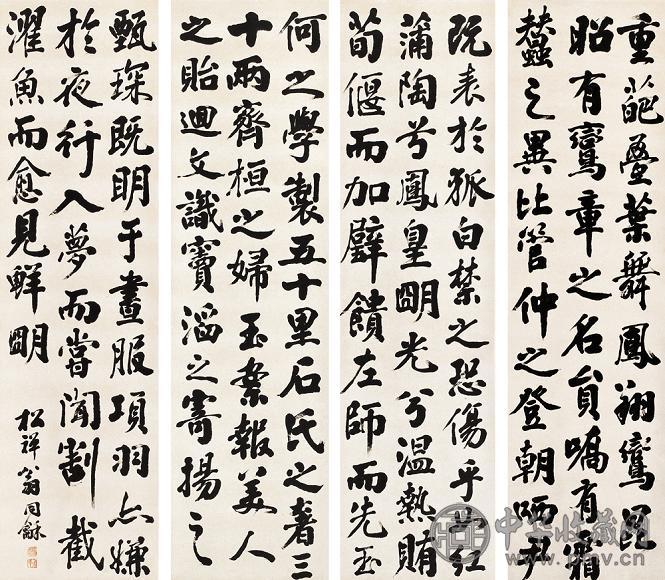 重葩疊葉舞鳳翔鸞昆
昭有鸞章之名員嶠有霜
蠶之異比管仲之登朝哂尹
既表於狐白禁之恐傷乎紅
蒲陶兮鳳皇朙光兮溫熱賄
荀偃而加璧饋左師而先玉
何之學製五十里石氏之奢三
十兩齊桓之婦玉案報美人
之貽迴文識竇滔之寄揚之
甄琛既明于晝服項羽亦嫌
於夜行入夢而嘗聞割截
濯魚而愈見鮮朙
松禪翁同龢
中华收藏网